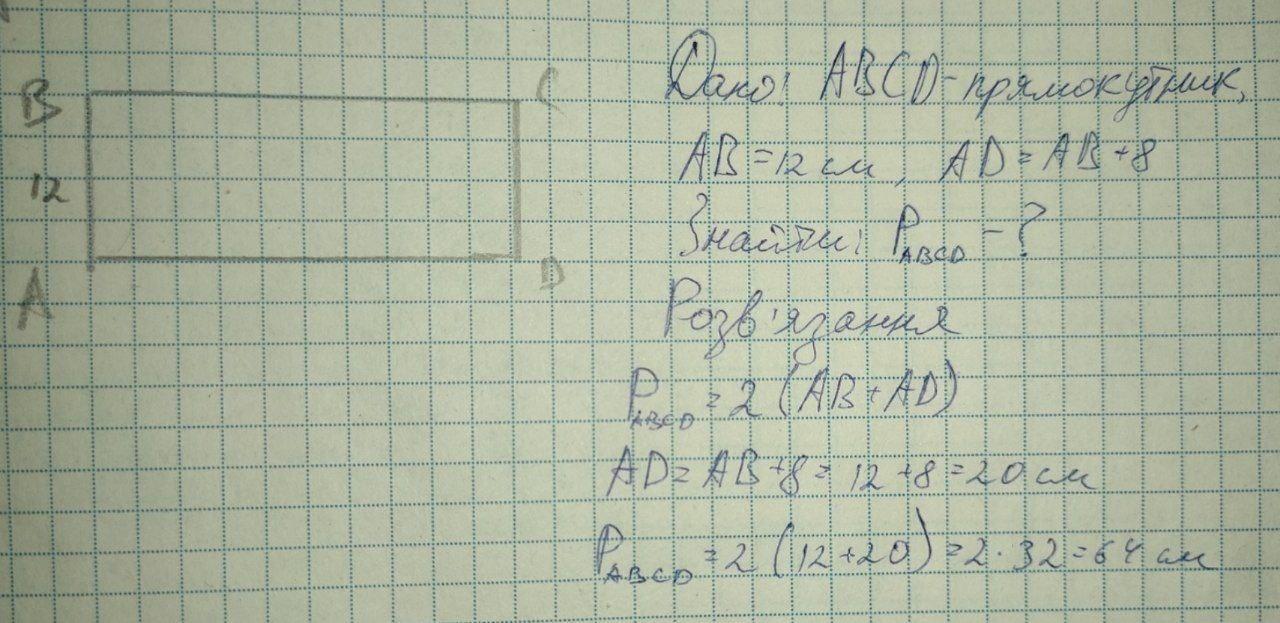 B
C
12
A
D
Дано: ABCD - прямокутник,
AB = 12 см, AD = AB + 8
Знайти: P ABCD - ?
Розв'язання
P ABCD = 2 (AB + AD)
AD = AB + 8 = 12 + 8 = 20 см
P ABCD = 2 (12 + 20) = 2 · 32 = 64 см